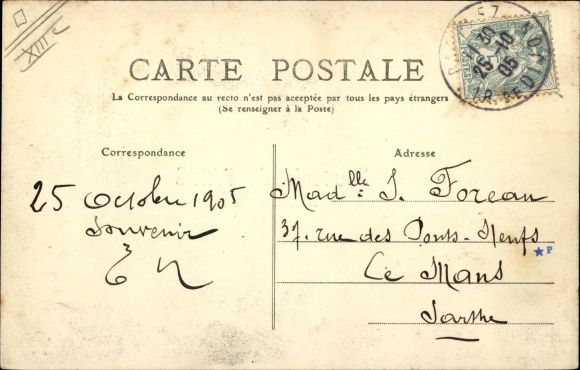 XIIIe
CARTE POSTALE
La Correspondance au recto n'est pas acceptée par tous les pays étrangers
(Se renseigner à la Poste)
Correspondance
Adresse
25 Octobre 1905
Souvenir
Madlle J. Foreau
37. rue des Ponts-Neufs
Le Mans
Sarthe
1 30
25-10
05
POSTES
P